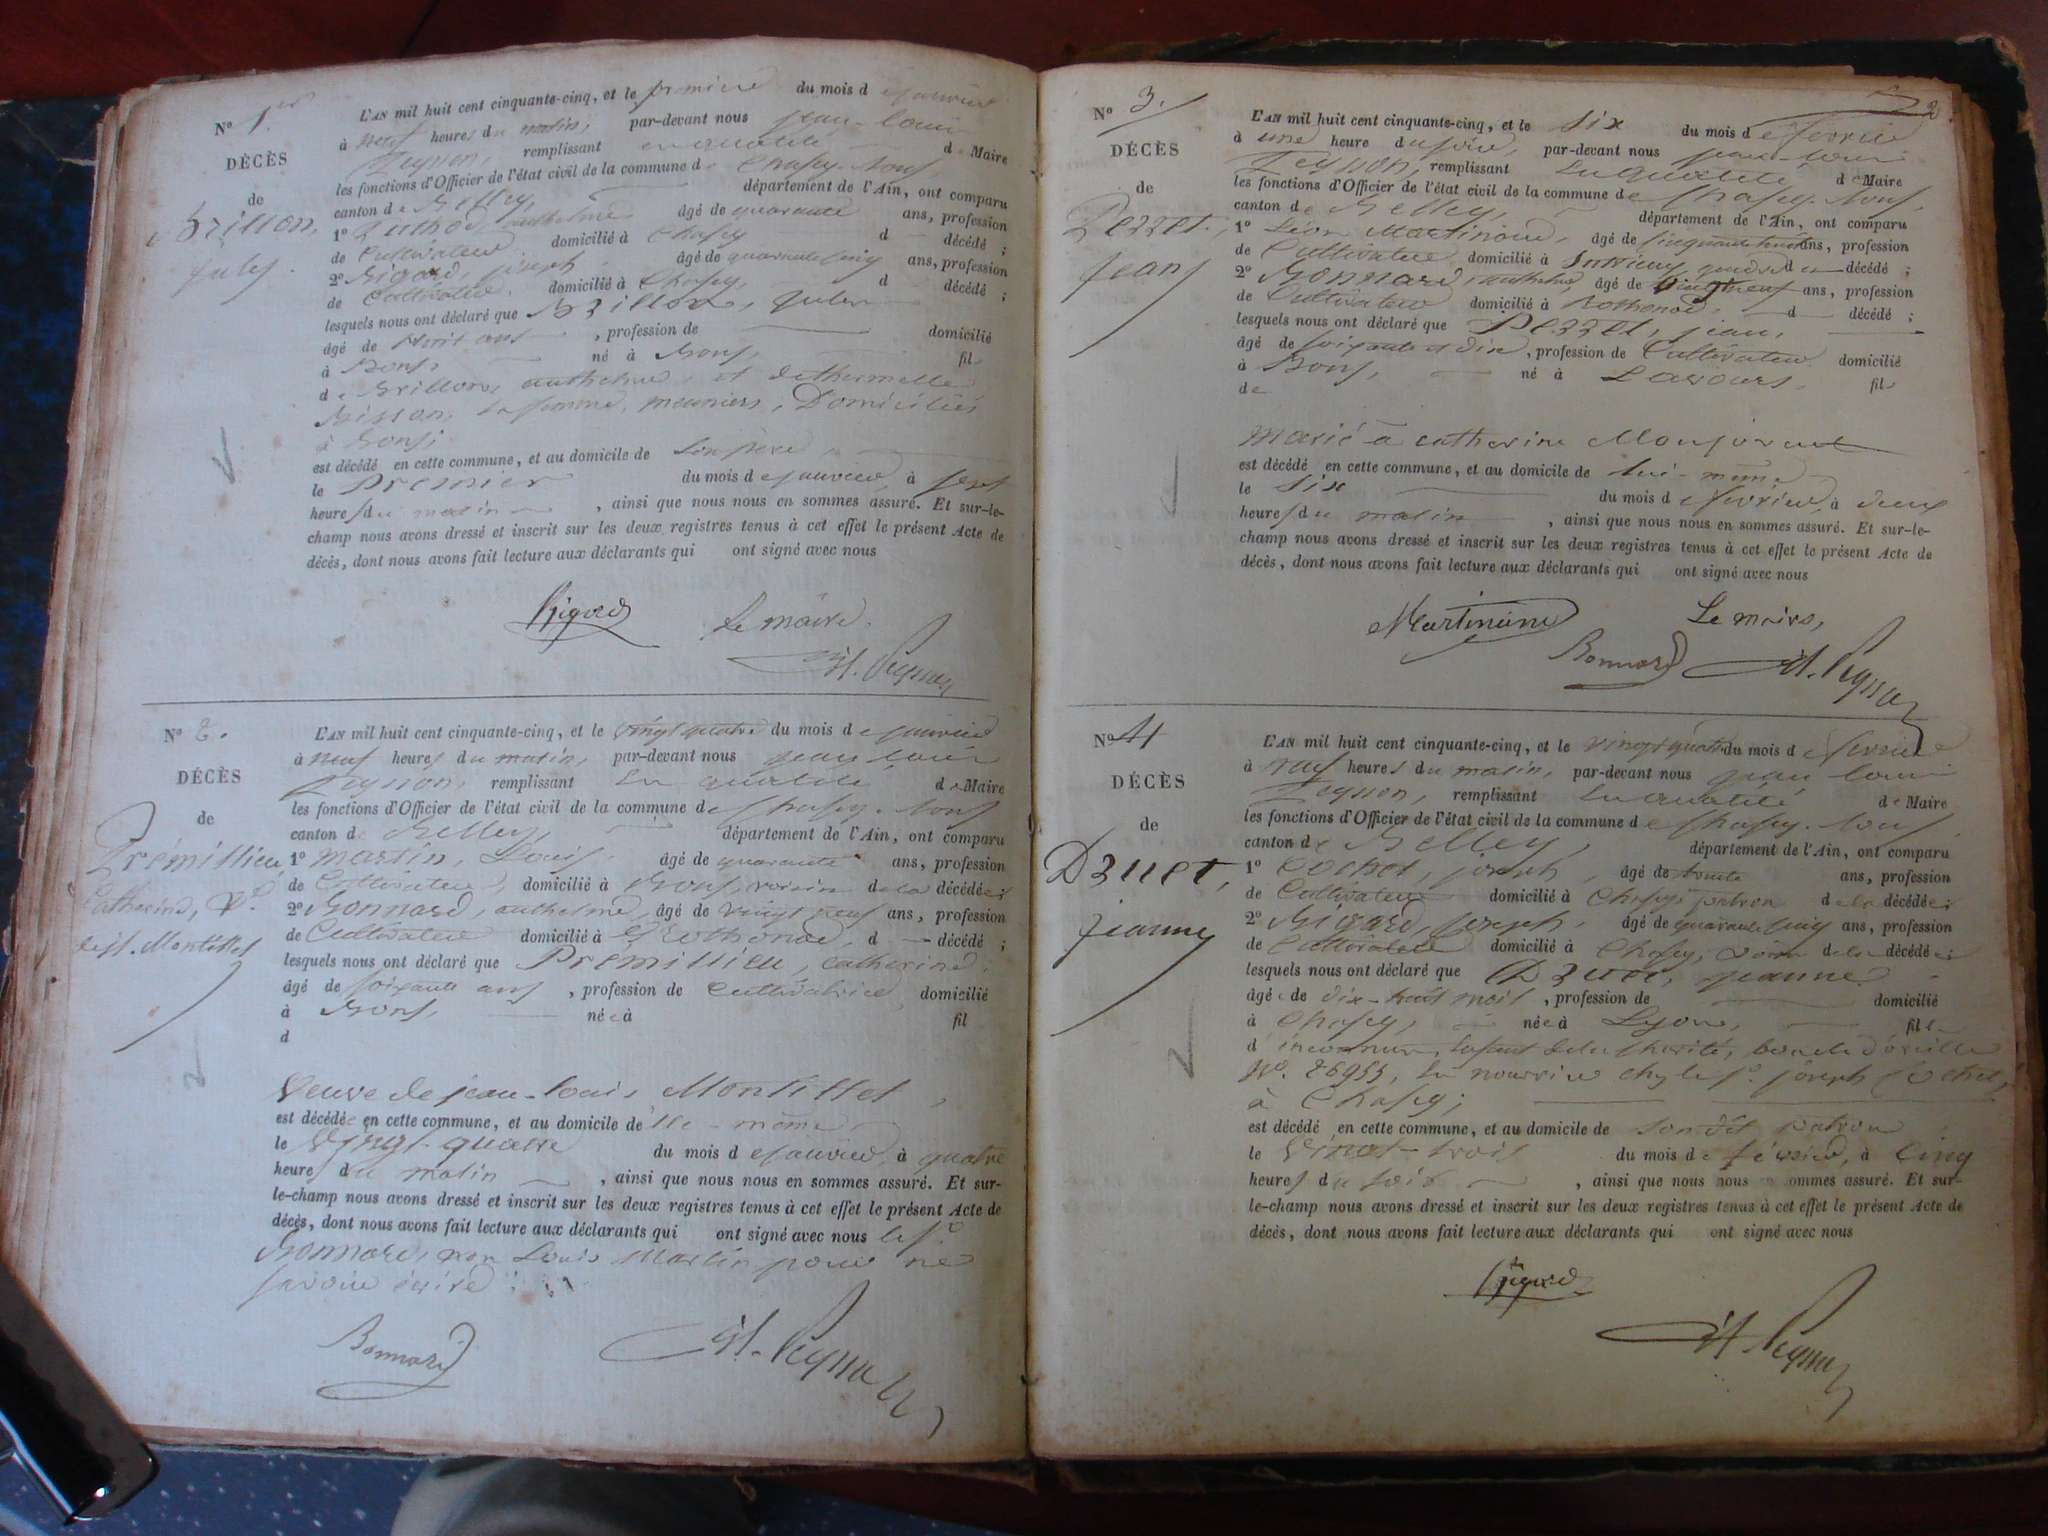 Nº 1er
DÉCÈS
de
Brillon,
Jules.
L'AN mil huit cent cinquante-cinq, et le premier du mois de janvier
à neuf heures du matin, par-devant nous jean-louis
Peysson, remplissant en qualité de Maire
les fonctions d'Officier de l'état civil de la commune de Chasey-Bons,
canton de Belley, département de l'Ain, ont comparu
1º anthelme âgé de quarante ans, profession
de Cultivateur domicilié à Chasey d décédé ;
2º Rigord, joseph, âgé de quarante cinq ans, profession
de Cultivateur, domicilié à Chasey, d décédé ;
lesquels nous ont déclaré que Brillon, Jules
âgé de ans , profession de domicilié
à Bons, né à Bons, fils
de Brillon, anthelme, et
Bisson, sa femme, meuniers, Domiciliés
à Bons;
est décédé en cette commune, et au domicile de son père
le Premier du mois de janvier, à sept
heures du matin , ainsi que nous nous en sommes assuré. Et sur-le-
champ nous avons dressé et inscrit sur les deux registres tenus à cet effet le présent Acte de
décès, dont nous avons fait lecture aux déclarants qui ont signé avec nous
Rigord Le maire,
Peysson
Nº 2.
DÉCÈS
de
Prémillieu,
Catherine, Ve
de jn. Montillet
L'AN mil huit cent cinquante-cinq, et le vingt quatre du mois de janvier
à neuf heures du matin, par-devant nous jean louis
Peysson, remplissant en qualité de Maire
les fonctions d'Officier de l'état civil de la commune de Chasey-Bons
canton de Belley, département de l'Ain, ont comparu
1º martin, Louis, âgé de quarante ans, profession
de Cultivateur, domicilié à Bons, voisin de la décédée ;
2º Bonnard, anthelme, âgé de vingt neuf ans, profession
de Cultivateur domicilié à Rothonod, d décédé ;
lesquels nous ont déclaré que Premillieu, catherine,
âgé de soixante ans , profession de Cultivatrice domicilié
à Bons, née à fil
d
Veuve de jean-louis Montillet ,
est décédée en cette commune, et au domicile de elle-même
le vingt-quatre du mois de janvier, à quatre
heures du matin , ainsi que nous nous en sommes assuré. Et sur-
le-champ nous avons dressé et inscrit sur les deux registres tenus à cet effet le présent Acte de
décès, dont nous avons fait lecture aux déclarants qui ont signé avec nous le sr
Bonnard, non Louis Martin pour ne
savoir écrire.
Bonnard Peysson
2
Nº 3.
DÉCÈS
de
Pezzet,
jean
L'AN mil huit cent cinquante-cinq, et le six du mois de fevrier
à une heure du soir, par-devant nous jean-louis
Peysson, remplissant en qualité de Maire
les fonctions d'Officier de l'état civil de la commune de Chasey-Bons,
canton de Belley, département de l'Ain, ont comparu
1º Léon Martinand, âgé de cinquante huit ans, profession
de Cultivateur domicilié à décédé ;
2º Bonnard, anthelme âgé de vingt neuf ans, profession
de Cultivateur domicilié à Rothonod, d décédé ;
lesquels nous ont déclaré que Pezzet, jean,
âgé de soixante et dix , profession de Cultivateur domicilié
à Bons, né à Lavours, fils
de
marié à catherine Monjovent
est décédé en cette commune, et au domicile de lui-même
le six du mois de fevrier, à deux
heures du matin , ainsi que nous nous en sommes assuré. Et sur-le-
champ nous avons dressé et inscrit sur les deux registres tenus à cet effet le présent Acte de
décès, dont nous avons fait lecture aux déclarants qui ont signé avec nous
Martinand Le maire,
Bonnard Peysson
Nº 4
DÉCÈS
de
Druet,
jeanne
L'AN mil huit cent cinquante-cinq, et le vingt quatre du mois de fevrier
à neuf heures du matin, par-devant nous jean louis
Peysson, remplissant en qualité de Maire
les fonctions d'Officier de l'état civil de la commune de Chasey-Bons
canton de Belley, département de l'Ain, ont comparu
1º Cochet, joseph, âgé de trente ans, profession
de Cultivateur domicilié à Chasey patron de la décédée ;
2º Rigord, joseph, âgé de quarante cinq ans, profession
de Cultivateur domicilié à Chasey, voisin de la décédée
lesquels nous ont déclaré que Druet, jeanne
âgée de dix-huit mois , profession de domicilié
à Chasey, née à Lyon, fille
d'inconnus, enfant de la charité, boucle d'oreille
Nº. 26955, en nourrice chez le sr. joseph Cochet,
à Chasey;
est décédé en cette commune, et au domicile de son dit patron
le vingt-trois du mois de février, à cinq
heures du soir , ainsi que nous nous en sommes assuré. Et sur-
le-champ nous avons dressé et inscrit sur les deux registres tenus à cet effet le présent Acte de
décès, dont nous avons fait lecture aux déclarants qui ont signé avec nous
Rigord
Peysson